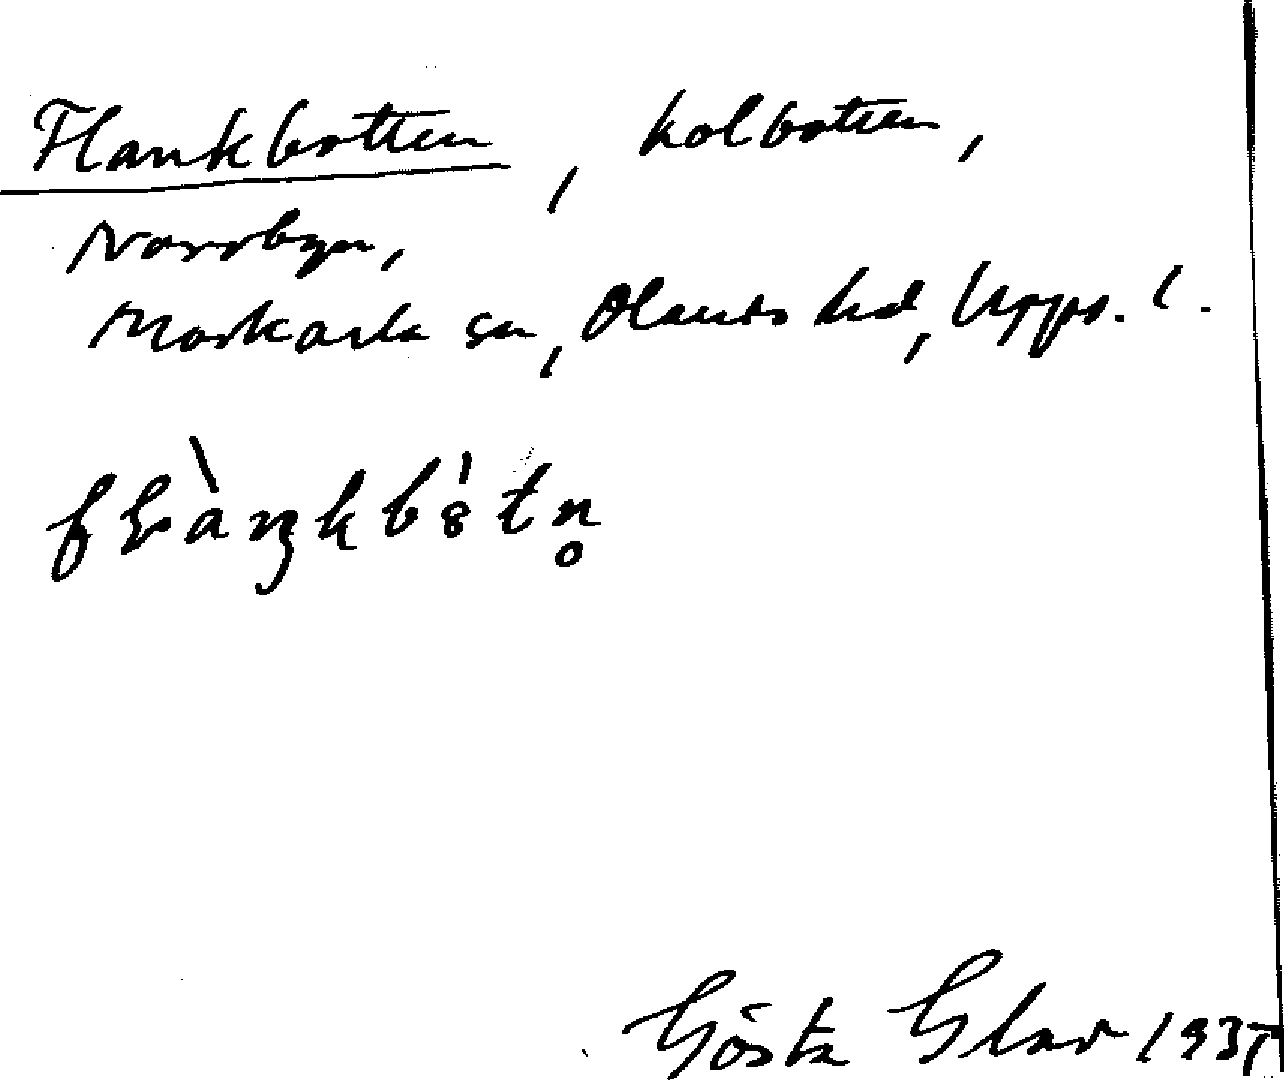 Flankbotten, kolbotten,
Norrbyn,
Morkarla sn, Olands hd, Upps. l.
Gösta Glav 1937